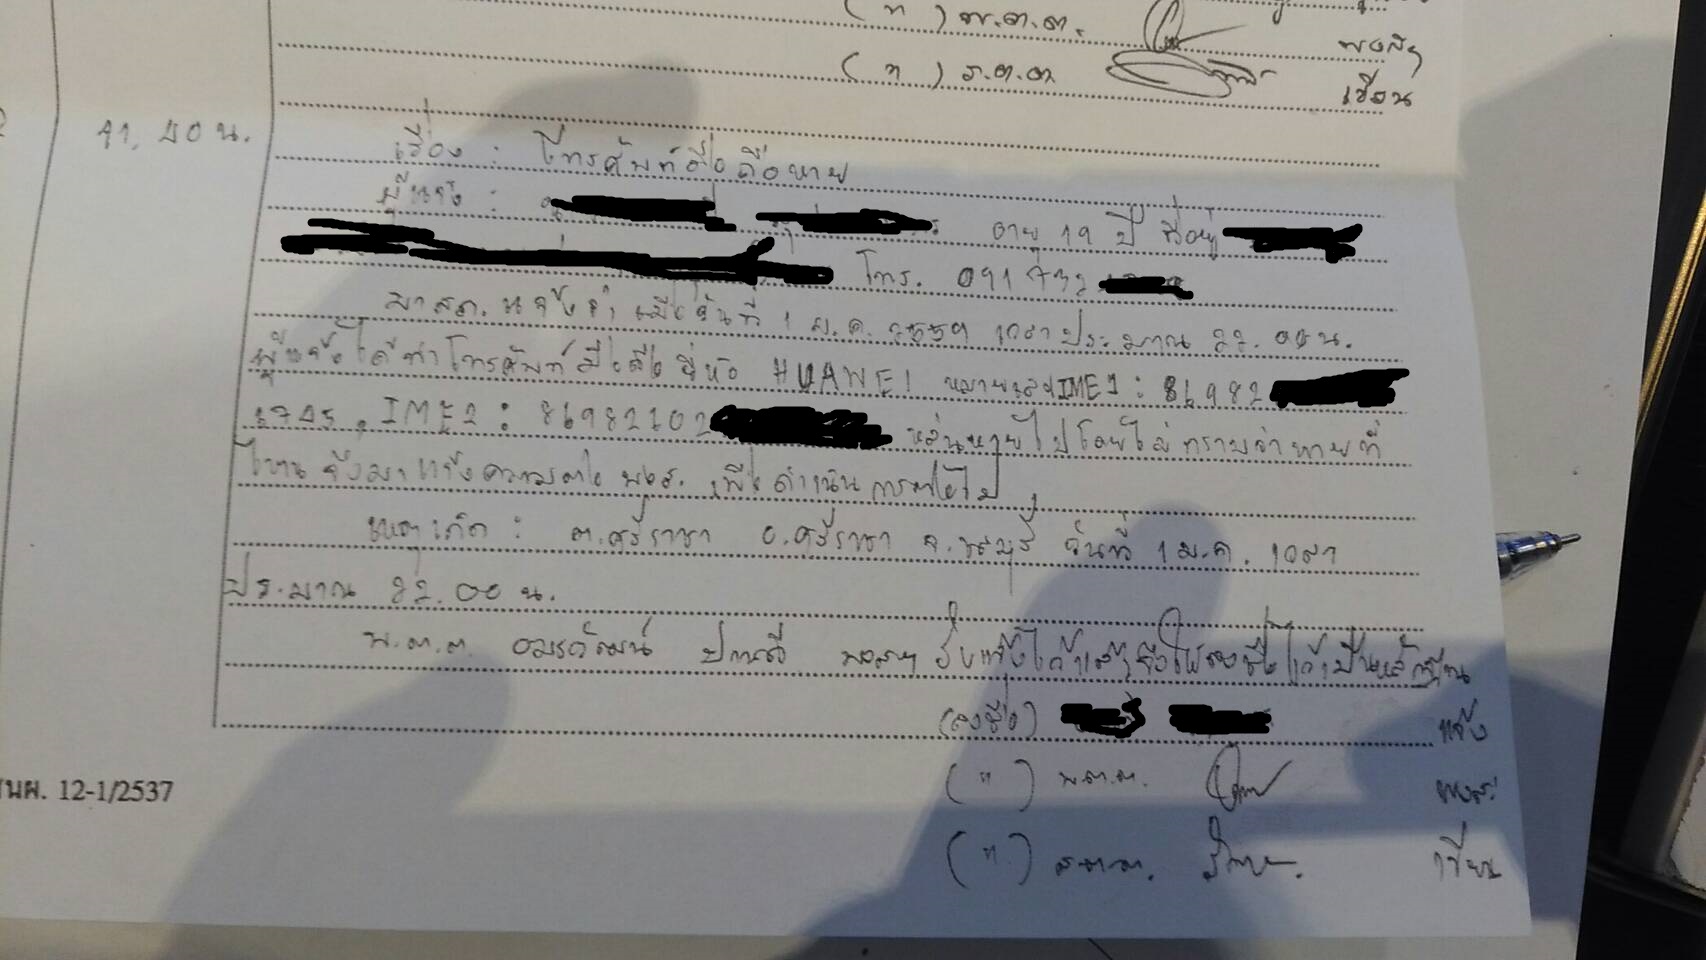 ( " ) พ.ต.ต. พงสฯ
( " ) ร.ต.ต. เขียน
น. เรื่อง : โทรศัพท์มือถือหาย
ผู้แจ้ง : อายุ 19 ปี ที่อยู่
โทร. 091 732
มา สภ. แจ้งว่า เมื่อวันที่ 1 ม.ค. 2559 เวลาประมาณ 22.00 น.
ผู้แจ้งได้ทำโทรศัพท์มือถือ ยี่ห้อ HUAWEI หมายเลขIME1 : 86982
IME2 : 86982102 หล่นหายไปโดยไม่ทราบว่าหายที่
ไหน จึงมาแจ้งความต่อ พงส. เพื่อดำเนินการต่อไป
เหตุเกิด : ต.ศรีราชา อ.ศรีราชา จ.ชลบุรี วันที่ 1 ม.ค. เวลา
ประมาณ 22.00 น.
พ.ต.ต. อมรวัฒน์ พงสฯ รับแจ้งไว้แล้วจึงให้ลงชื่อไว้เป็นหลักฐาน
(ลงชื่อ) แจ้ง
( " ) พ.ต.ต. พงส.
( " ) ร.ต.ต. เขียน
นผ. 12-1/2537